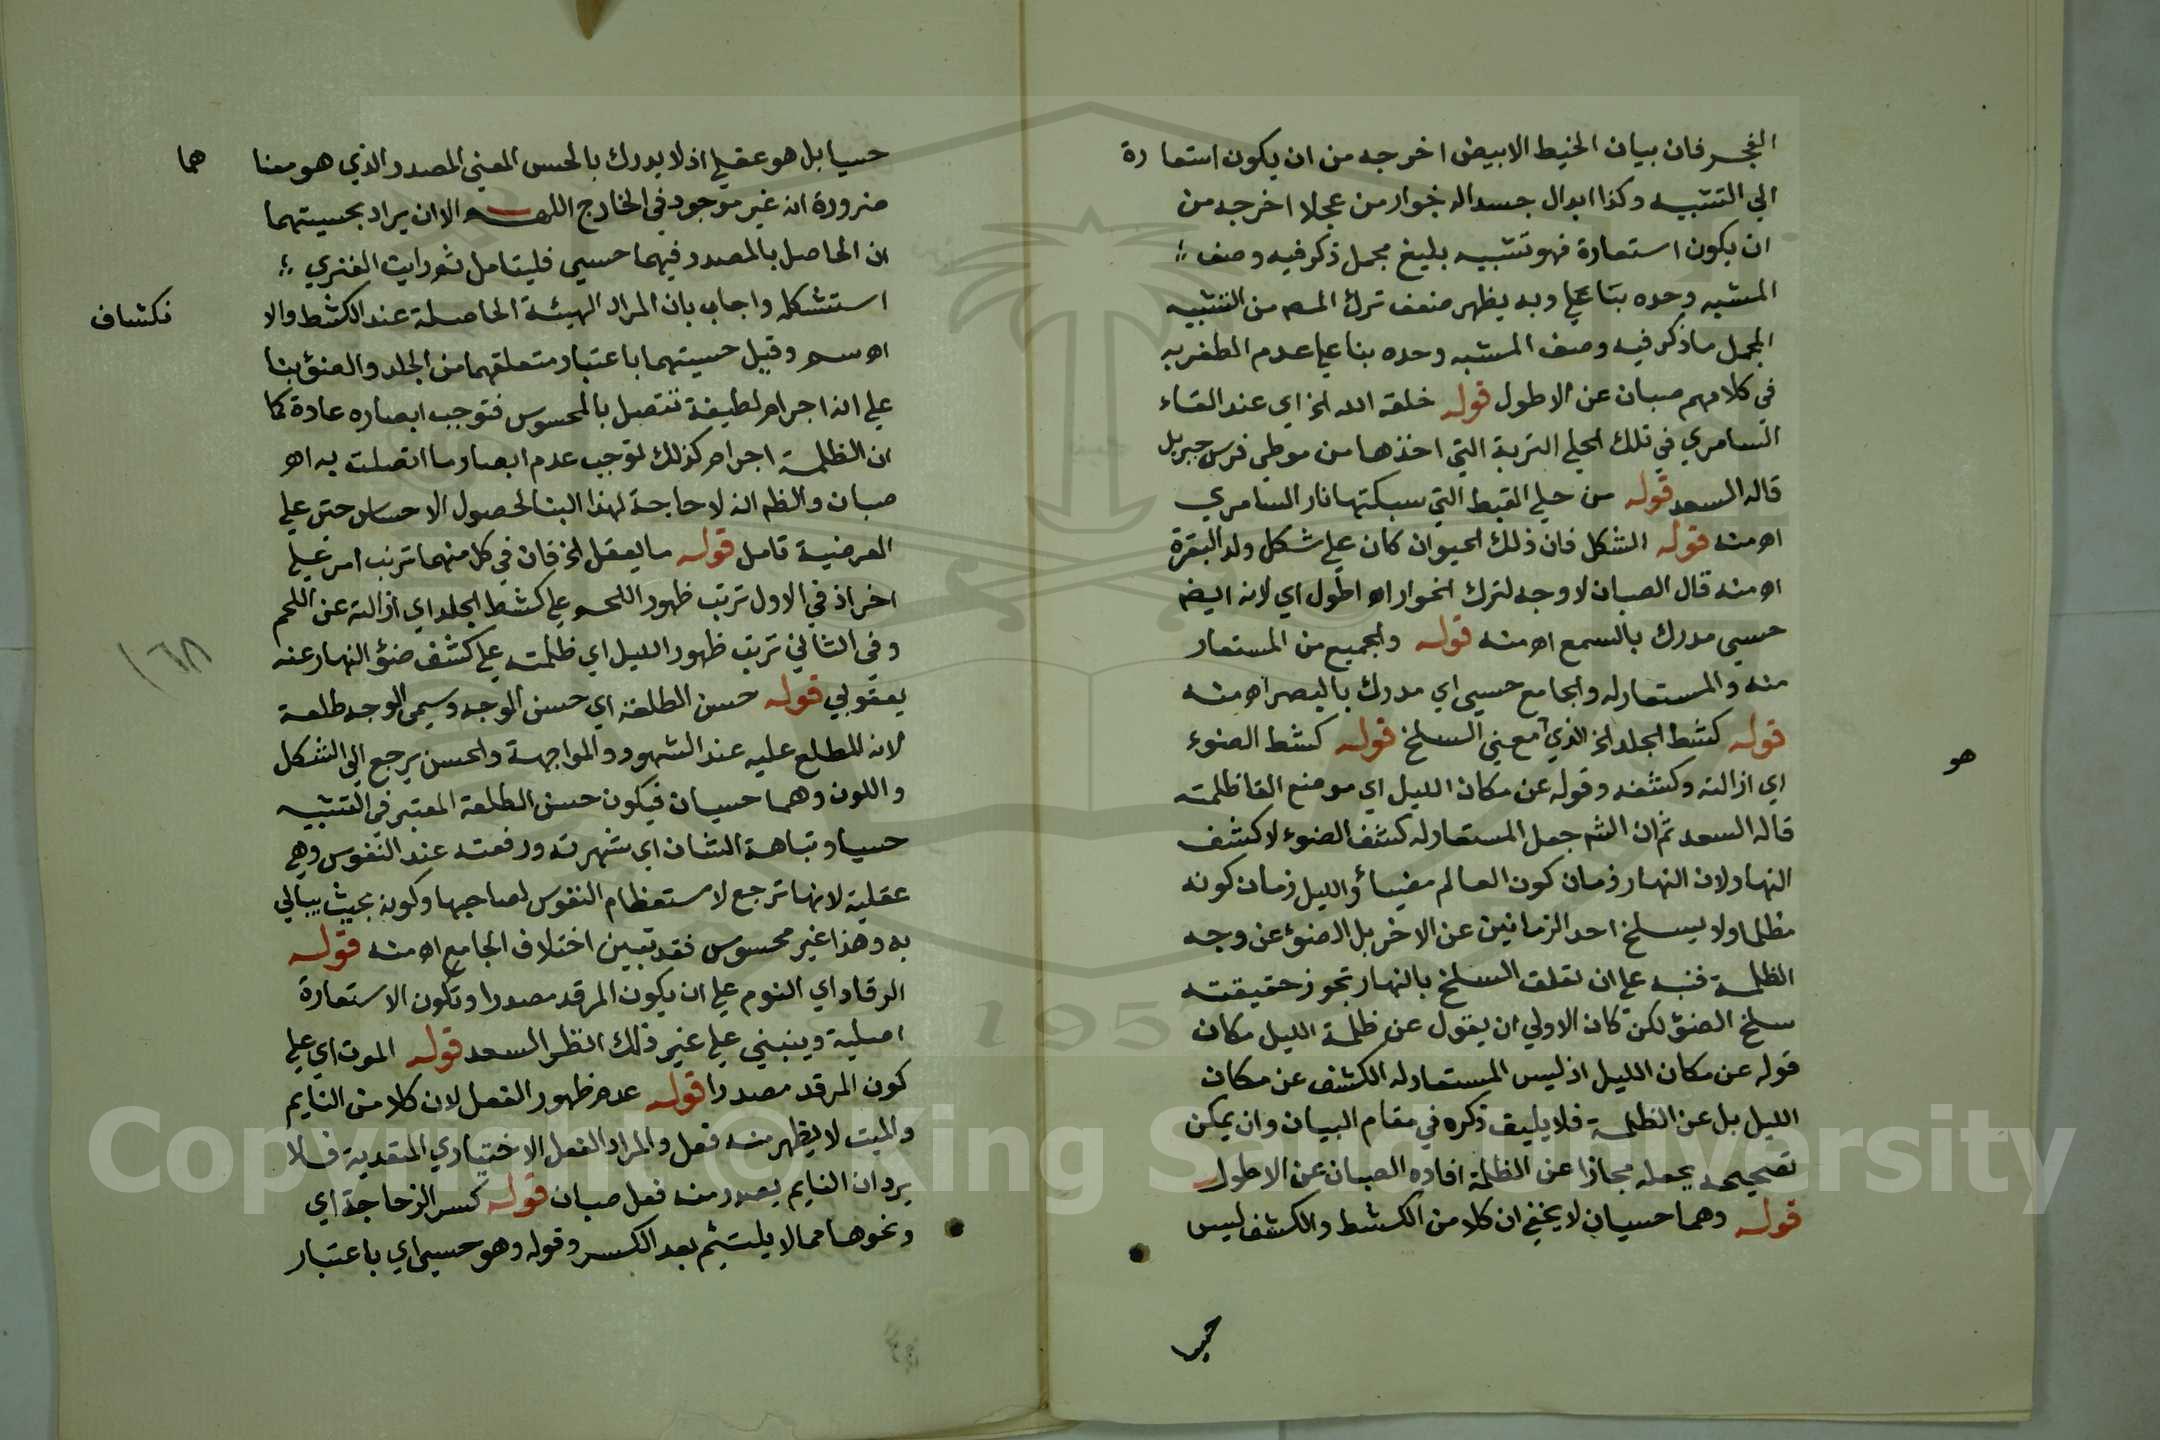 الفجر فان بيان الخيط الابيض اخرجه من ان يكون استعارة
الي التشبيه وكذا ابدال جسدا له خوار من عجلا اخرجه من
ان يكون استعارة فهو تشبيه بليغ مجمل ذكر فيه وصف
المشبه وحده بنا علي وبه يظهر ضعف ترك المص من التشبيه
المجمل ما ذكر فيه وصف المشبه وحده بنا علي عدم الظفر به
في كلامهم صبان عن الاطول قوله خلقه الله الخ اي عند القاء
السامري في تلك الحلي التربة التي اخذها من موطي فرس جبريل
قاله السعد قوله من حلي القبط التي سبكتها نار السامري
اه منه قوله الشكل فان ذلك الحيوان كان علي شكل ولد البقرة
اه منه قال الصبان لا وجه لترك الخوار اه اطول اي لانه ايضا
حسي مدرك بالسمع اه منه قوله والجميع من المستعار
منه والمستعار له والجامع حسي اي مدرك بالبصر اه منه
قوله كشط الجلد الخ الذي معني السلخ قوله كشط الضوء
هو
اي ازالته وكشفه وقوله عن مكان الليل اي موضع القا ظلمته
قاله السعد ثم ان الشم جعل المستعار له كشف الضوء لا كشف
النهار لان النهار زمان كون العالم مضيأ والليل زمان كونه
مظلما ولا يسلخ احد الزمانين عن الاخر بل الضؤ عن وجه
الظلمة فنبه علي ان تعلق السلخ بالنهار تجوز حقيقته
سلخ الضؤ لكن كان الاولي ان يقول عن ظلمة الليل مكان
قوله عن مكان الليل اذ ليس المستعار له الكشف عن مكان
الليل بل عن الظلمة فلا يليق ذكره في مقام البيان وان يمكن
تصحيحه بجعله مجازا عن الظلمة افاده الصبان عن الاطول
قوله وهما حسيان لا يخفي ان كلا من الكشط والكشف ليس
حسيا
حسيا بل هو عقلي اذ لا يدرك بالحس المعني المصدر والذي هو معنا
هما
ضرورة انه غير موجود في الخارج اللهم الا ان يراد بحسيتهما
ان الحاصل بالمصدر فيهما حسي فليتامل ثم رايت الفنري
استشكله واجاب بان المراد الهيئة الحاصلة عند الكشط والا
نكشاف
اه سم وقيل حسيتهما باعتبار متعلقهما من الجلد والضؤ بنا
علي انه اجرام لطيفة تتصل بالمحسوس فتوجب ابصاره عادة كما
ان الظلمة اجرام كذلك توجب عدم ابصار ما اتصلت به اه
صبان والظم انه لا حاجة لهذا البنا لحصول الاحساس حتي علي
العرضية تامل قوله ما يعقل الخ فان في كل منهما ترتب امر علي
اخر اذ في الاول ترتب ظهور اللحم علي كشط الجلد اي ازالته عن اللحم
وفي الثاني ترتب ظهور الليل اي ظلمته علي كشف ضؤ النهار عنه
١٦٨
يعقوبي قوله حسن الطلعة اي حسن الوجه وسمي الوجه طلعة
لانه المطلع عليه عند الشهود والمواجهة والحسن يرجع الي الشكل
واللون وهما حسيان فيكون حسن الطلعة المعتبر في التشبيه
حسيا ونباهة الشان اي شهرته ورفعته عند النفوس وهي
عقلية لانها ترجع لاستعظام النفوس لصاحبها وكونه بحيث يبالي
به وهذا غير محسوس فقد تبين اختلاف الجامع اه منه قوله
الرقاد اي النوم علي ان يكون المرقد مصدرا وتكون الاستعارة
اصلية وينبني علي غير ذلك انظر السعد قوله الموت اي علي
كون المرقد مصدرا قوله عدم ظهور الفعل لان كلا من النايم
والميت لا يظهر منه فعل والمراد الفعل الاختياري المتعدية فلا
يرد ان النايم يصدر منه فعل صبان قوله كسر الزجاجة اي
ونحوها مما لا يلتئم بعد الكسر وقوله وهو حسي اي باعتبار
1957
Copyright © King Saud University